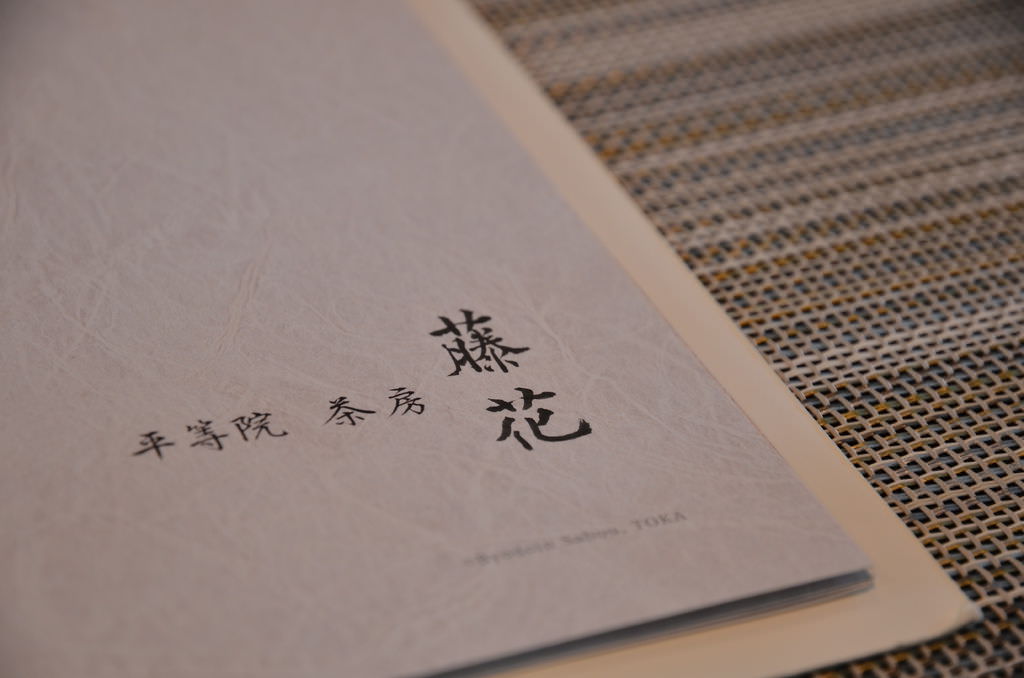 平等院 茶房
藤花
©Byodoin Sabou, TOKA